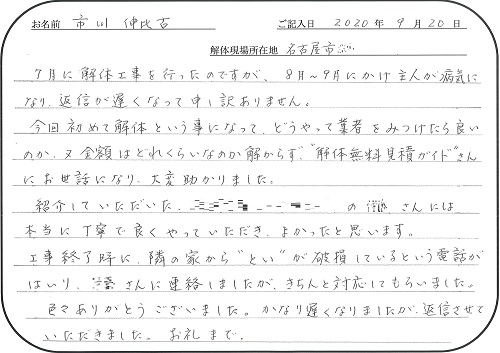 お名前 市川 伸比古 ご記入日 2020年9月20日
解体現場所在地 名古屋市
7月に解体工事を行ったのですが、8月〜9月にかけ主人が病気に
なり、返信が遅くなって申し訳ありません。
今回初めて解体という事になって、どうやって業者をみつけたら良い
のか、又金額はどれくらいなのか解からず、"解体無料見積ガイド"さん
にお世話になり、大変助かりました。
紹介していただいた、 の さんには
本当に丁寧で良くやっていただき、よかったと思います。
工事終了時に、隣の家から"とい"が破損しているという電話が
はいり、 さんに連絡しましたが、きちんと対応してもらいました。
色々ありがとうございました。かなり遅くなりましたが、返信させて
いただきました。 お礼まで。